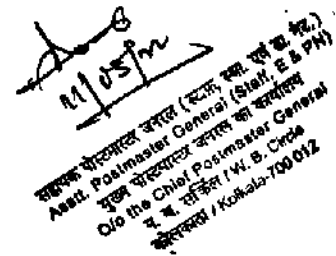 11/05/12
सहायक पोस्टमास्टर जनरल (स्टाफ, स्था. एवं डा. भंट.)
Asstt. Postmaster General (Staff, E & PN)
मुख्य पोस्टमास्टर जनरल का कार्यालय
O/o the Chief Postmaster General
प. बं. सर्किल / W. B. Circle
कोलकाता / Kolkata-700 012